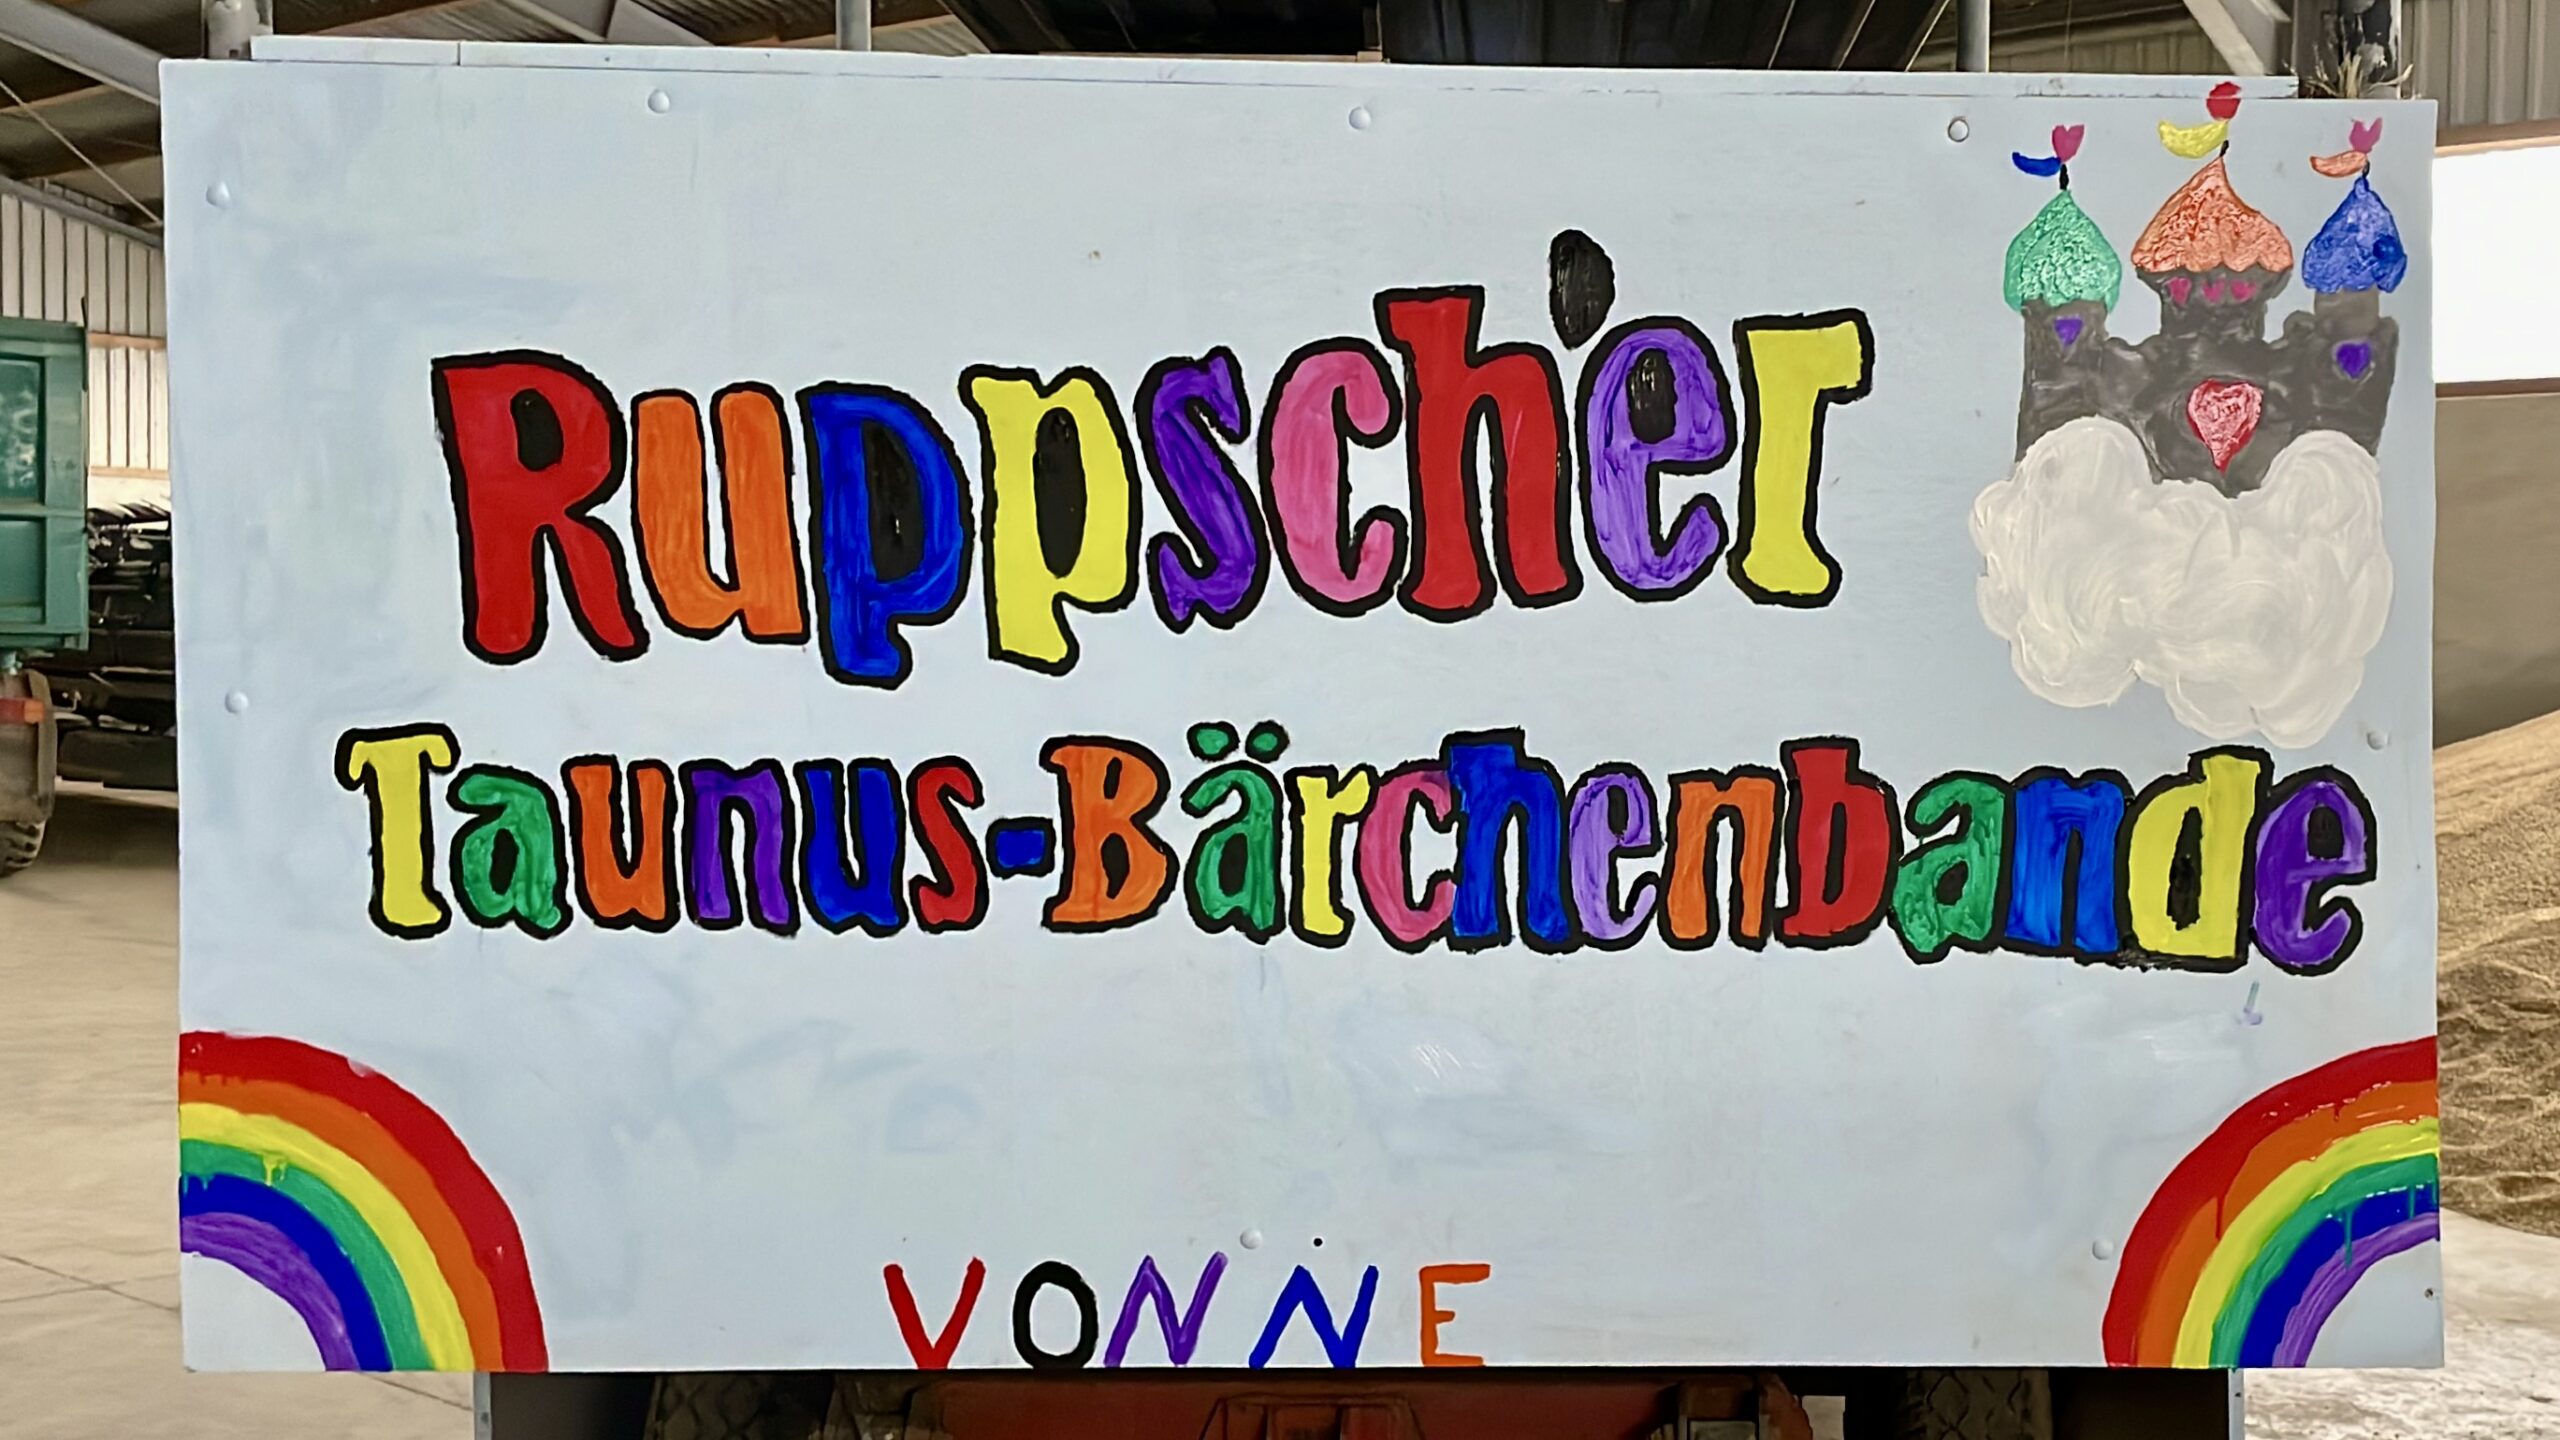 Ruppsch'er
Taunus-Bärchenbande
VONNE